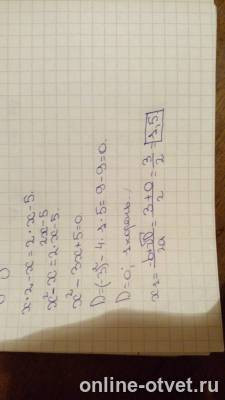 x·2-x=2·x-5.
2x-5
x²-x=2·x-5.
x²-3x+5=0.
D=(-3)²-4·1·5=9-9=0.
D=0; 1 корень.
x₁=-b+√D/2a=3+0/2=3/2=1,5
online-otvet.ru